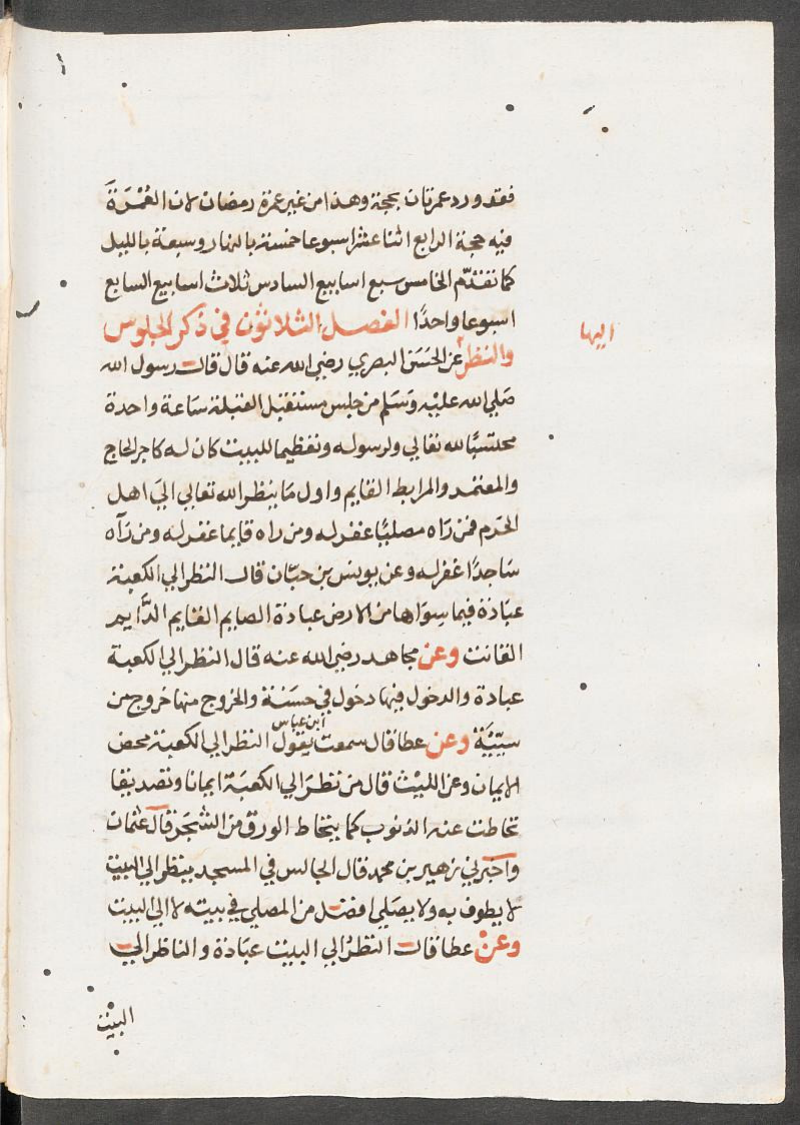 فقد ورد عمرتان بحجة وهذا من غير عمرة رمضان لان العُمْرَةَ
فيه حجة الرابع اثنا عشر اسبوعا خمسة بالنهار وسبعة بالليل
كما تقدّم الخامس سبع اسابيع السادس ثلاث اسابيع السابع
اسبوعا واحدًا الفصل الثلاثون في ذكر الجلوس
اليها
والنظر عن الحَسَن البصري رضي الله عنه قال قال رسول الله
صَلي الله عليْه وَسَلم من جلس مستقبل القبلة سَاعة واحدة
محتسبًا لله تعالي ولرسوله وتعظيما للبيت كان له كاجر الحاج
والمعتمر والمرابط القايم واول مَا ينظر الله تعالي اليَ اهل
الحَرَم فمن رَاه مصليًا غفر له ومن راه قايما غفر له ومن رَآه
سَاجدًا غفر له وعن يونس بن حبّان قال النظر الي الكعبة
عبَادَة فيما سِوَاها من الارض عبادة الصايم القايم الدَّايم
القانت وعن مجاهد رضي الله عنه قال النظر الي الكعبة
عبادة والدخول فيها دخول في حسَنة والخروج منها خروج من
سيّيَة وعن عطا قال سمعت ابن عباس يقول النظر الي الكعبة محض
الايمان وعن الليْث قال من نظَرَ الي الكعبَة ايمانا وتصديقا
تحاطت عنه الذنوب كما يتحاط الورق من الشجَر قال عثمان
واخبرني زهير بن محمد قال الجالس في المسجد ينظر الي البيت
لا يطوف به ولا يصَلي افضل من المصلي في بيته لا الي البيت
وعن عطا قال النظرُ الي البيت عبَادَة والناظر الي
البيْت